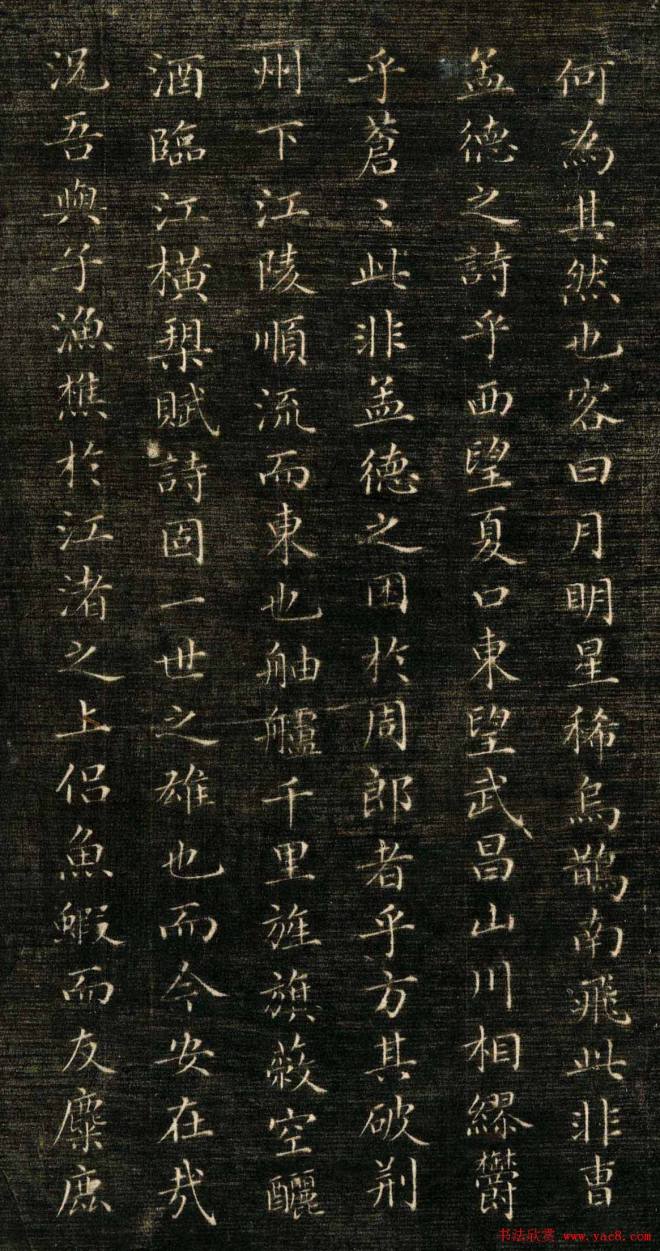 何為其然也客曰月明星稀烏鵲南飛此非曹
孟德之詩乎西望夏口東望武昌山川相繆欝
乎蒼〻此非孟德之困於周郎者乎方其破荆
州下江陵順流而東也舳艫千里旌旗蔽空釃
酒臨江橫槊賦詩固一世之雄也而今安在哉
況吾與子漁樵於江渚之上侣魚鰕而友麋鹿
书法欣赏_www.yac8.com